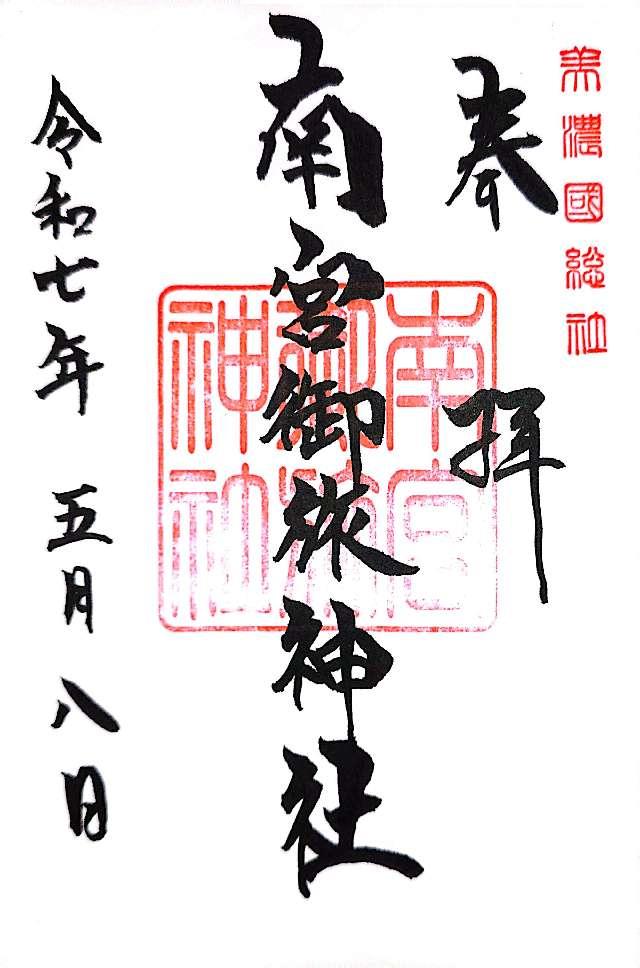 美濃國総社
奉拝
南宮御旅神社
南宮御旅神社
令和七年 五月八日